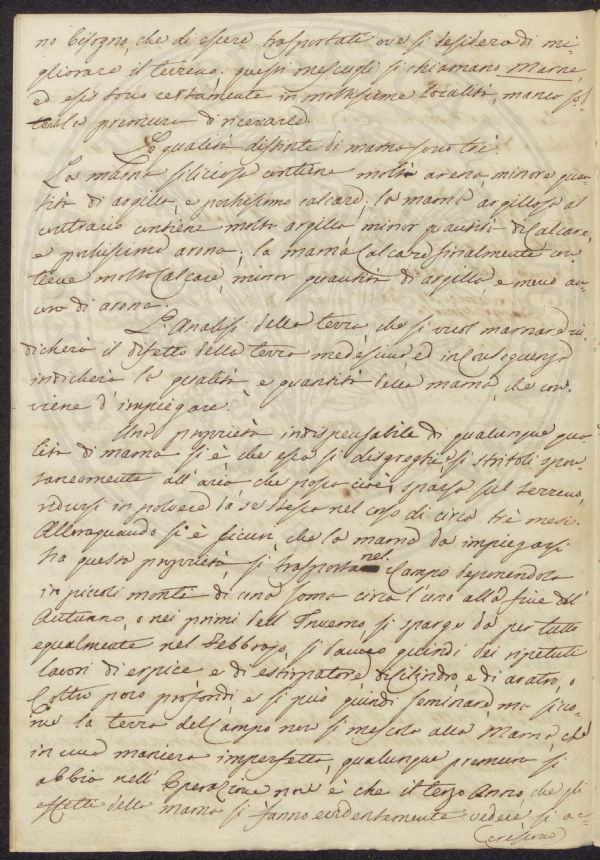 no bisogno, che di essere trasportati ove si desidera di mi-
gliorare il terreno. questi mescugli si chiamano Marne,
ed esistono certamente in moltissime località, manca sol
la premura di ricercarle.
Le qualità distinte di marna sono trè.
La marna siliciosa contiene molta arena, minore quan-
tità di argilla, e pochissimo calcare; la marna argillosa al
contrario contiene molta argilla minor quantità di Calcare,
e pochissima arena; la marna Calcare finalmente con-
tiene molto Calcare, minor quantità di argilla, e meno an-
cora di arena.
L'Analisi della terra che si vuol marnare in-
dicherà il difetto della terra medesima, ed in conseguenza
indicherà la qualità e quantità della marna, che con-
viene d'impiegare.
Una proprietà indispensabile di qualunque qua-
lità di marna si è che essa si disgreghi e si stritoli spon-
taneamente all'aria che possa cioè, sparsa sul terreno,
ridursi in polvere da se stessa nel corso di circa trè mesi.
Allorquando si è sicuri che la marna da impiegarsi
ha questa proprietà, si trasporta nel Campo deponendola
in piccoli monti di una soma circa l'uno alla fine dell'
Autunno, o nei primi dell'Inverno, si sparge da per tutto
egualmente nel Febbrajo, si danno quindi dei ripetuti
lavori di erpice e di estirpatore di cilindro e di aratro, o
Coltro poco profondi, e si può quindi seminare, ma sico-
me la terra del Campo non si mescola alla Marna, che
in una maniera imperfetta, qualunque premura si
abbia nell'Operazione non è che il terzo Anno, che gli
effetti della marna si fanno evidentemente vedere, si ac-
crescono